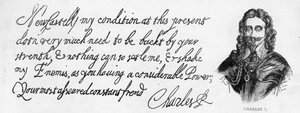 Newcastell / my condition at this present
doth very much need to be backt by your
strenth, & nothing can so setle me, & shake
my Enemys, as you having a considerable Power,
Your most asseured constant frend
Charles R
CHARLES I.